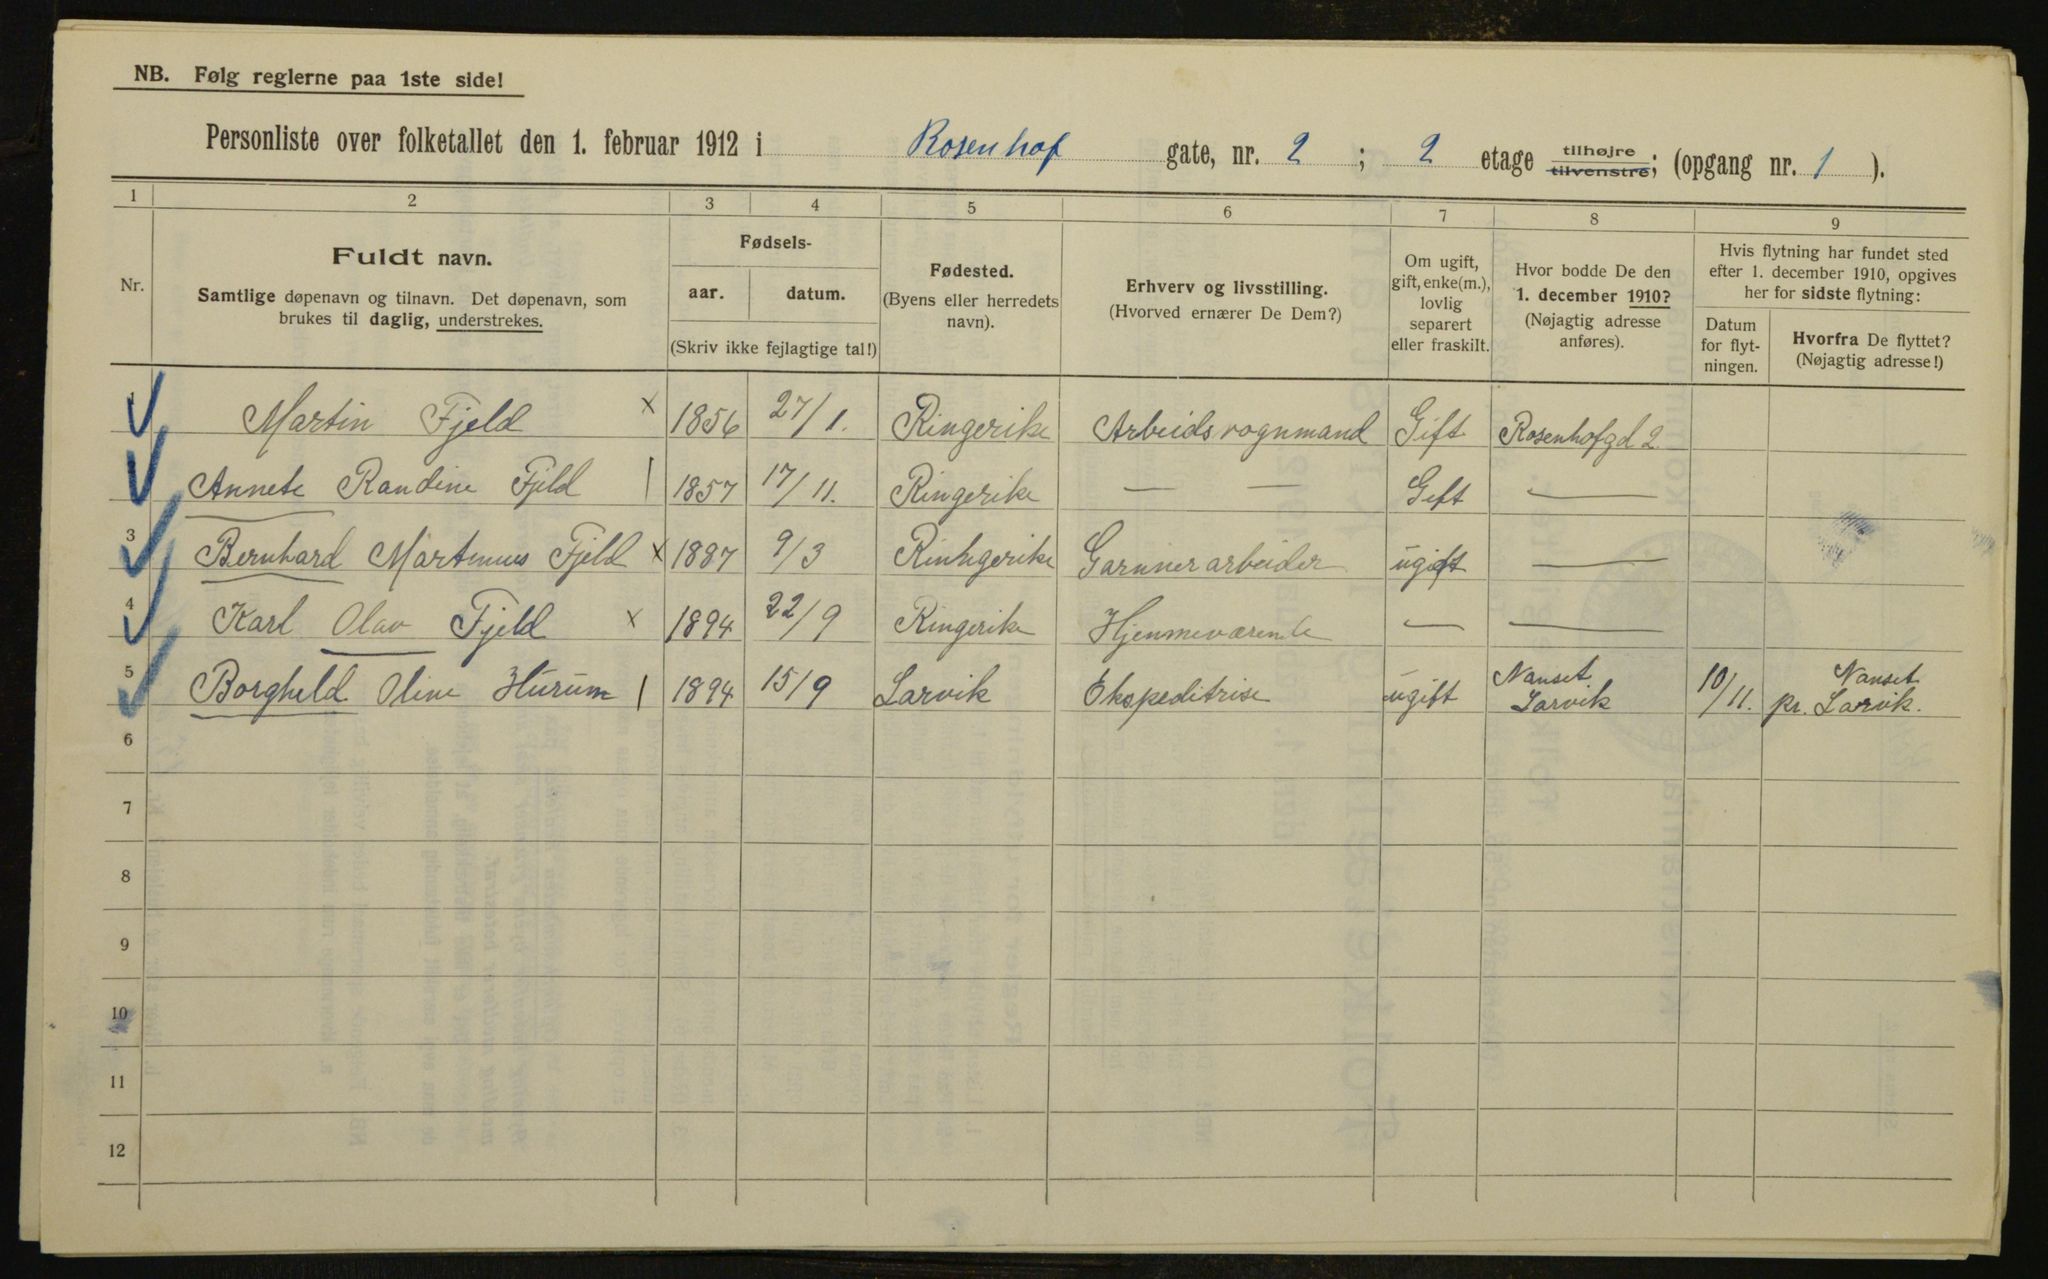 NB. Følg reglerne paa 1ste side!
Personliste over folketallet den 1. februar 1912 i Rosenhof gate, nr. 2 ; 2 etage tilhøjre tilvenstre; (opgang nr. 1 ).
1 2 3 4 5 6 7 8 9
Nr.
Fuldt navn.
Samtlige døpenavn og tilnavn. Det døpenavn, som
brukes til daglig, understrekes.
Fødsels-
aar. datum.
(Skriv ikke fejlagtige tal!)
Fødested.
(Byens eller herredets
navn).
Erhverv og livsstilling.
(Hvorved ernærer De Dem?)
Om ugift,
gift, enke(m.),
lovlig
separert
eller fraskilt.
Hvor bodde De den
1. december 1910?
(Nøjagtig adresse
anføres).
Hvis flytning har fundet sted
efter 1. december 1910, opgives
her for sidste flytning:
Datum
for flyt-
ningen.
Hvorfra De flyttet?
(Nøjagtig adresse!)
Martin Fjeld x 1856 27/1. Ringerike Arbeidsvognmand Gift Rosenhofgd 2.
Annete Randine Fjeld | 1857 17/11. Ringerike — — Gift —
3 Bernhard Martinius Fjeld x 1887 9/3 Rinhgerike Garnnerarbeider ugift —
4 Karl Olav Fjeld x 1894 22/9 Ringerike Hjemmeværende — —
5 Borghild Oline Hurum | 1894 15/9 Larvik Ekspeditrise ugift Nanset Larvik 10/11. Nanset pr. Larvik.
6
7
8
9
10
11
12